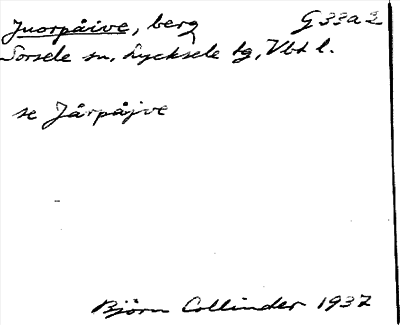 Juorpåive, berg G 33a 2
Sorsele sn, Lycksele tg, Vbt l.
se Jårpåjve
Björn Collinder 1937